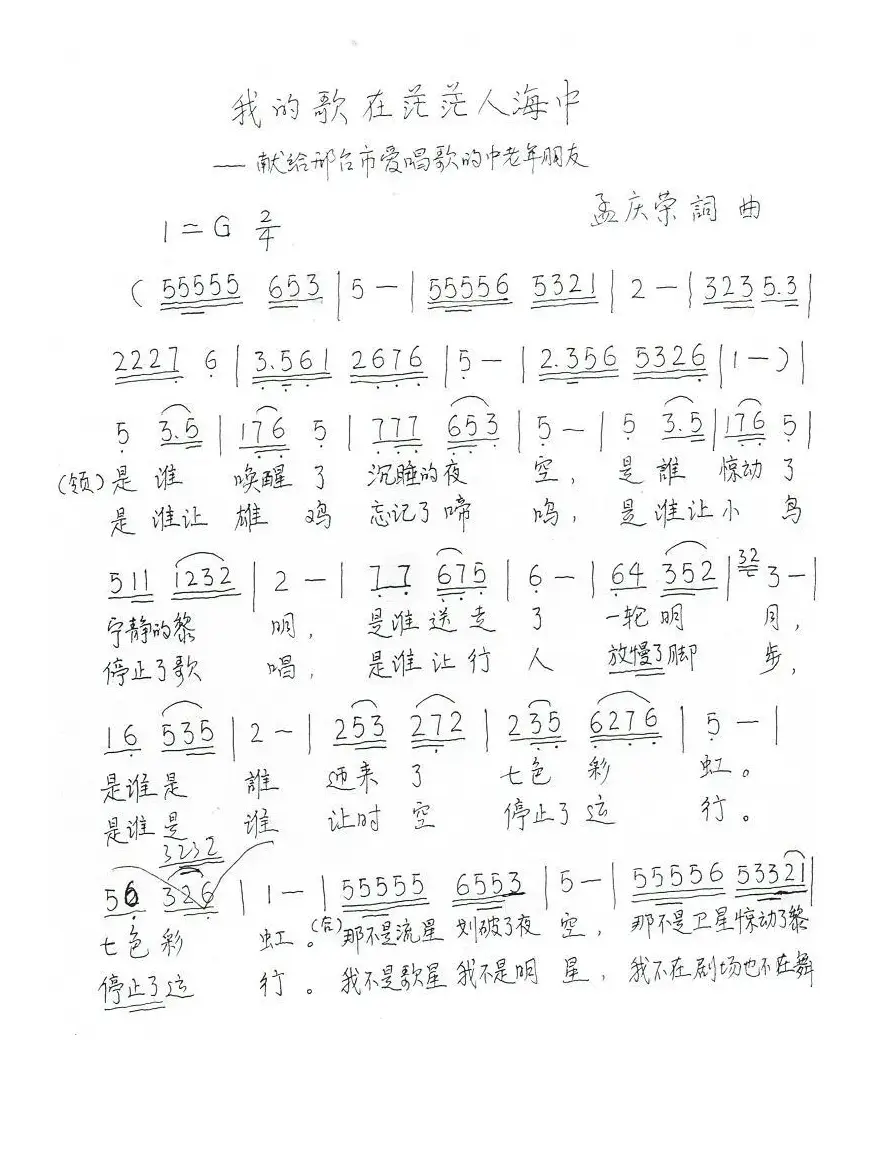 我的歌在茫茫人海中
—献给邢台市爱唱歌的中老年朋友
孟庆荣 詞 曲
1=G 2/4
( 55555 653 | 5 — | 55556 5321 | 2 — | 323 5.3 |
2227 6 | 3.561 2676 | 5 — | 2.356 5326 | 1 — ) |
5 3.5 | 176 5 | 777 653 | 5 — | 5 3.5 | 176 5 |
(领) 是 谁 唤醒 了 沉睡的夜 空, 是 誰 惊动 了
是 谁让 雄 鸡 忘记了啼 鸣, 是谁让小 鸟
511 1232 | 2 — | 77 675 | 6 — | 64 352 | 32 3 — |
宁静的黎 明, 是谁送走 了 一轮明 月,
停止了歌 唱, 是谁让行 人 放慢了脚 步,
16 535 | 2 — | 253 272 | 235 6276 | 5 — |
是谁是 誰 迎来 了 七色 彩 虹。
是谁是 谁 让时 空 停止了运 行。
3232
56 326 | 1 — | 55555 6553 | 5 — | 55556 53321 |
七色 彩 虹。(合) 那不是流星 划破了夜 空, 那不是卫星惊动了黎
停止了运 行。我不是歌星 我不是明 星, 我不在剧场也不在舞